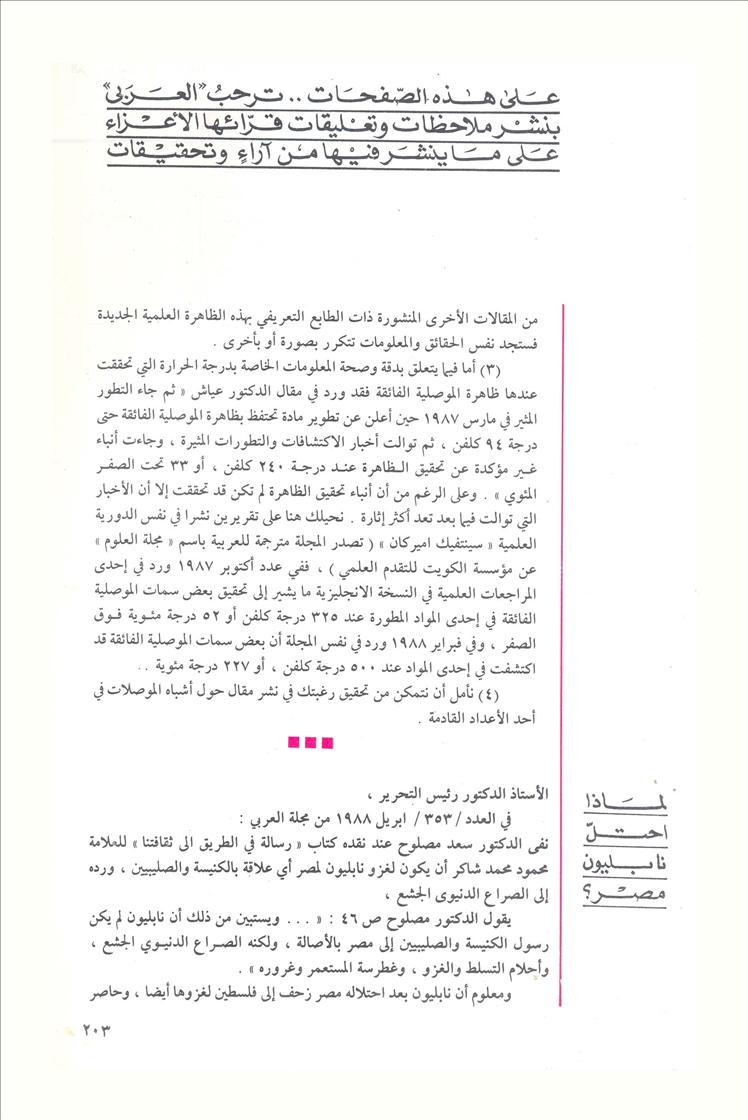 على هذه الصّفحات .. ترحبُ "العربي"
بنشر ملاحظات وتعليقات قرّائها الأعزاء
على ما ينشر فيها من آراءٍ وتحقيقات
من المقالات الأخرى المنشورة ذات الطابع التعريفي بهذه الظاهرة العلمية الجديدة
فستجد نفس الحقائق والمعلومات تتكرر بصورة أو بأخرى .
(٣) أما فيما يتعلق بدقة وصحة المعلومات الخاصة بدرجة الحرارة التي تحققت
عندها ظاهرة الموصلية الفائقة فقد ورد في مقال الدكتور عياش « ثم جاء التطور
المثير في مارس ١٩٨٧ حين أعلن عن تطوير مادة تحتفظ بظاهرة الموصلية الفائقة حتى
درجة ٩٤ كلفن ، ثم توالت أخبار الاكتشافات والتطورات المثيرة ، وجاءت أنباء
غير مؤكدة عن تحقيق الظاهرة عند درجة ٢٤٠ كلفن ، أو ٣٣ تحت الصفر
المئوي » . وعلى الرغم من أن أنباء تحقيق الظاهرة لم تكن قد تحققت إلا أن الأخبار
التي توالت فيما بعد تعد أكثر إثارة . نحيلك هنا على تقريرين نشرا في نفس الدورية
العلمية « سينتفيك اميركان » ( تصدر المجلة مترجمة للعربية باسم « مجلة العلوم »
عن مؤسسة الكويت للتقدم العلمي ) ، ففي عدد أكتوبر ١٩٨٧ ورد في إحدى
المراجعات العلمية في النسخة الانجليزية ما يشير إلى تحقيق بعض سمات الموصلية
الفائقة في إحدى المواد المطورة عند ٣٢٥ درجة كلفن أو ٥٢ درجة مئوية فوق
الصفر ، وفي فبراير ١٩٨٨ ورد في نفس المجلة أن بعض سمات الموصلية الفائقة قد
اكتشفت في إحدى المواد عند ٥٠٠ درجة كلفن ، أو ٢٢٧ درجة مئوية ..
(٤) نأمل أن نتمكن من تحقيق رغبتك في نشر مقال حول أشباه الموصلات في
أحد الأعداد القادمة .
لماذا
احتلّ
نابليون
مصر؟
الأستاذ الدكتور رئيس التحرير ،
في العدد / ٣٥٣ / ابريل ١٩٨٨ من مجلة العربي :
نفى الدكتور سعد مصلوح عند نقده كتاب « رسالة في الطريق الى ثقافتنا » للعلامة
محمود محمد شاكر أن يكون لغزو نابليون لمصر أي علاقة بالكنيسة والصليبيين ، ورده
إلى الصراع الدنيوى الجشع ،
يقول الدكتور مصلوح ص ٤٦ : « ... ويستبين من ذلك أن نابليون لم يكن
رسول الكنيسة والصليبيين إلى مصر بالأصالة ، ولكنه الصراع الدنيوي الجشع ،
وأحلام التسلط والغزو ، وغطرسة المستعمر وغروره » .
ومعلوم أن نابليون بعد احتلاله مصر زحف إلى فلسطين لغزوها أيضا ، وحاصر
٢٠٣